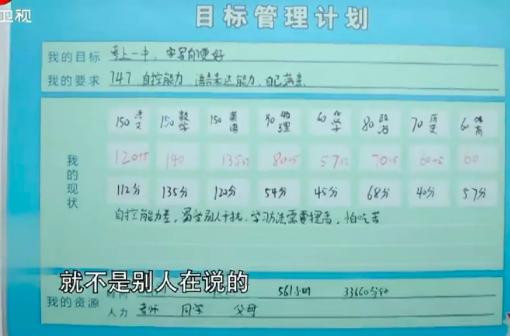 卫视
目标管理计划
我的目标 考上一中，字写的更好
我的要求 747，自控能力，语言表达能力，自己满意
150 语文 150 数学 150 英语 90 物理 60 化学 80 政治 70 历史 60 体育
我的现状
120+5 140 135+5 80+5 57+2 70+5 60+5 60
112分 135分 120分 54分 45分 68分 40分 57分
自控能力差，易受别人干扰，学习方法需要提高，怕吃苦
就不是别人在说的
我的资源
561小时 33660分钟
人力 老师 同学 父母